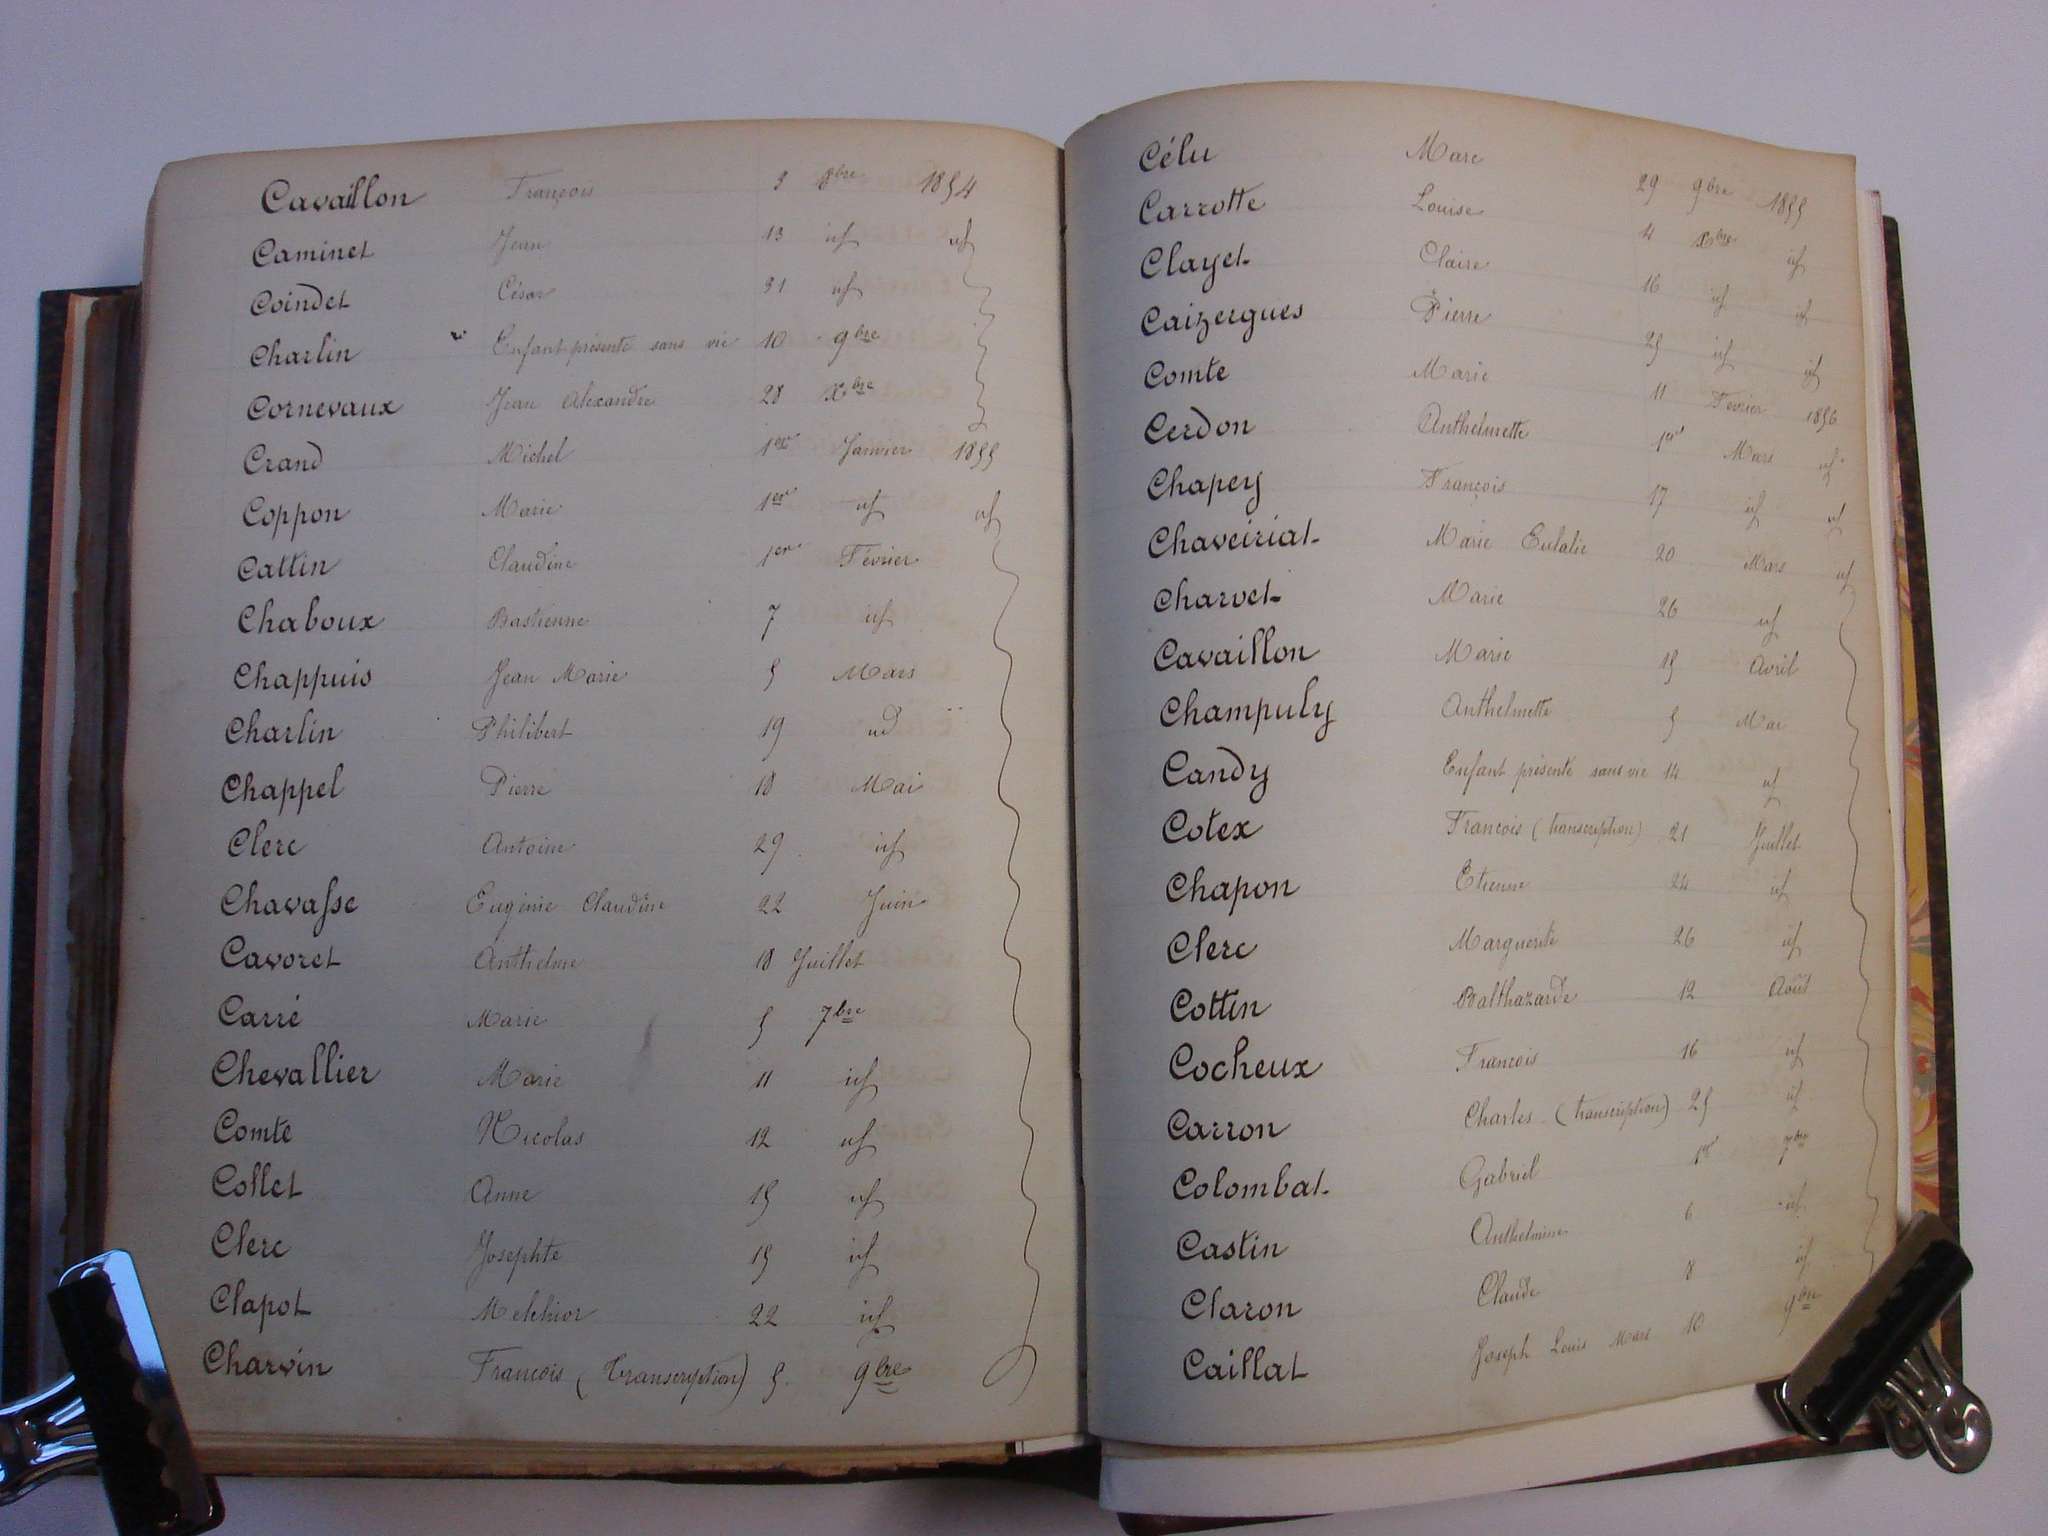 Cavaillon François 3 8bre 1854
Caminet Jean 13 id id
Coindet César 31 id
Charlin Enfant présenté sans vie 10 9bre
Cornevaux Jean Alexandre 28 Xbre
Crand Michel 1er Janvier 1855
Coppon Marie 1er id id
Cattin Claudine 1er Février
Chaboux Bastienne 7 id
Chappuis Jean Marie 5 Mars
Charlin Philibert 19 id
Chappel Pierre 18 Mai
Clerc Antoine 29 id
Chavasse Eugénie Claudine 22 Juin
Cavoret Anthelme 18 Juillet
Carré Marie 5 7bre
Chevallier Marie 11 id
Comte Nicolas 12 id
Collet Anne 15 id
Clerc Josephte 15 id
Clapot Melchior 22 id
Charvin François (Transcription) 5 9bre
Célu Marc 29 9bre 1855
Carrotte Louise 4 Xbre id
Clayet Claire 16 id id
Caizergues Pierre 25 id id
Comte Marie 11 Février 1856
Cerdon Anthelmette 1er Mars id
Chapey François 17 id id
Chaveiriat Marie Eulalie 20 Mars id
Charvet Marie 26 id
Cavaillon Marie 15 Avril
Champuly Anthelmette 5 Mai
Candy Enfant présenté sans vie 14 id
Cotex François (transcription) 21 Juillet
Chapon Etienne 24 id
Clerc Marguerite 26 id
Cottin Balthazarde 12 Août
Cocheux François 16 id
Carron Charles (transcription) 25 id
Colombat Gabriel 1er 7bre
Castin Anthelmine 6 id
Claron Claude 8 id
Caillat Joseph Louis Marc 10 9bre